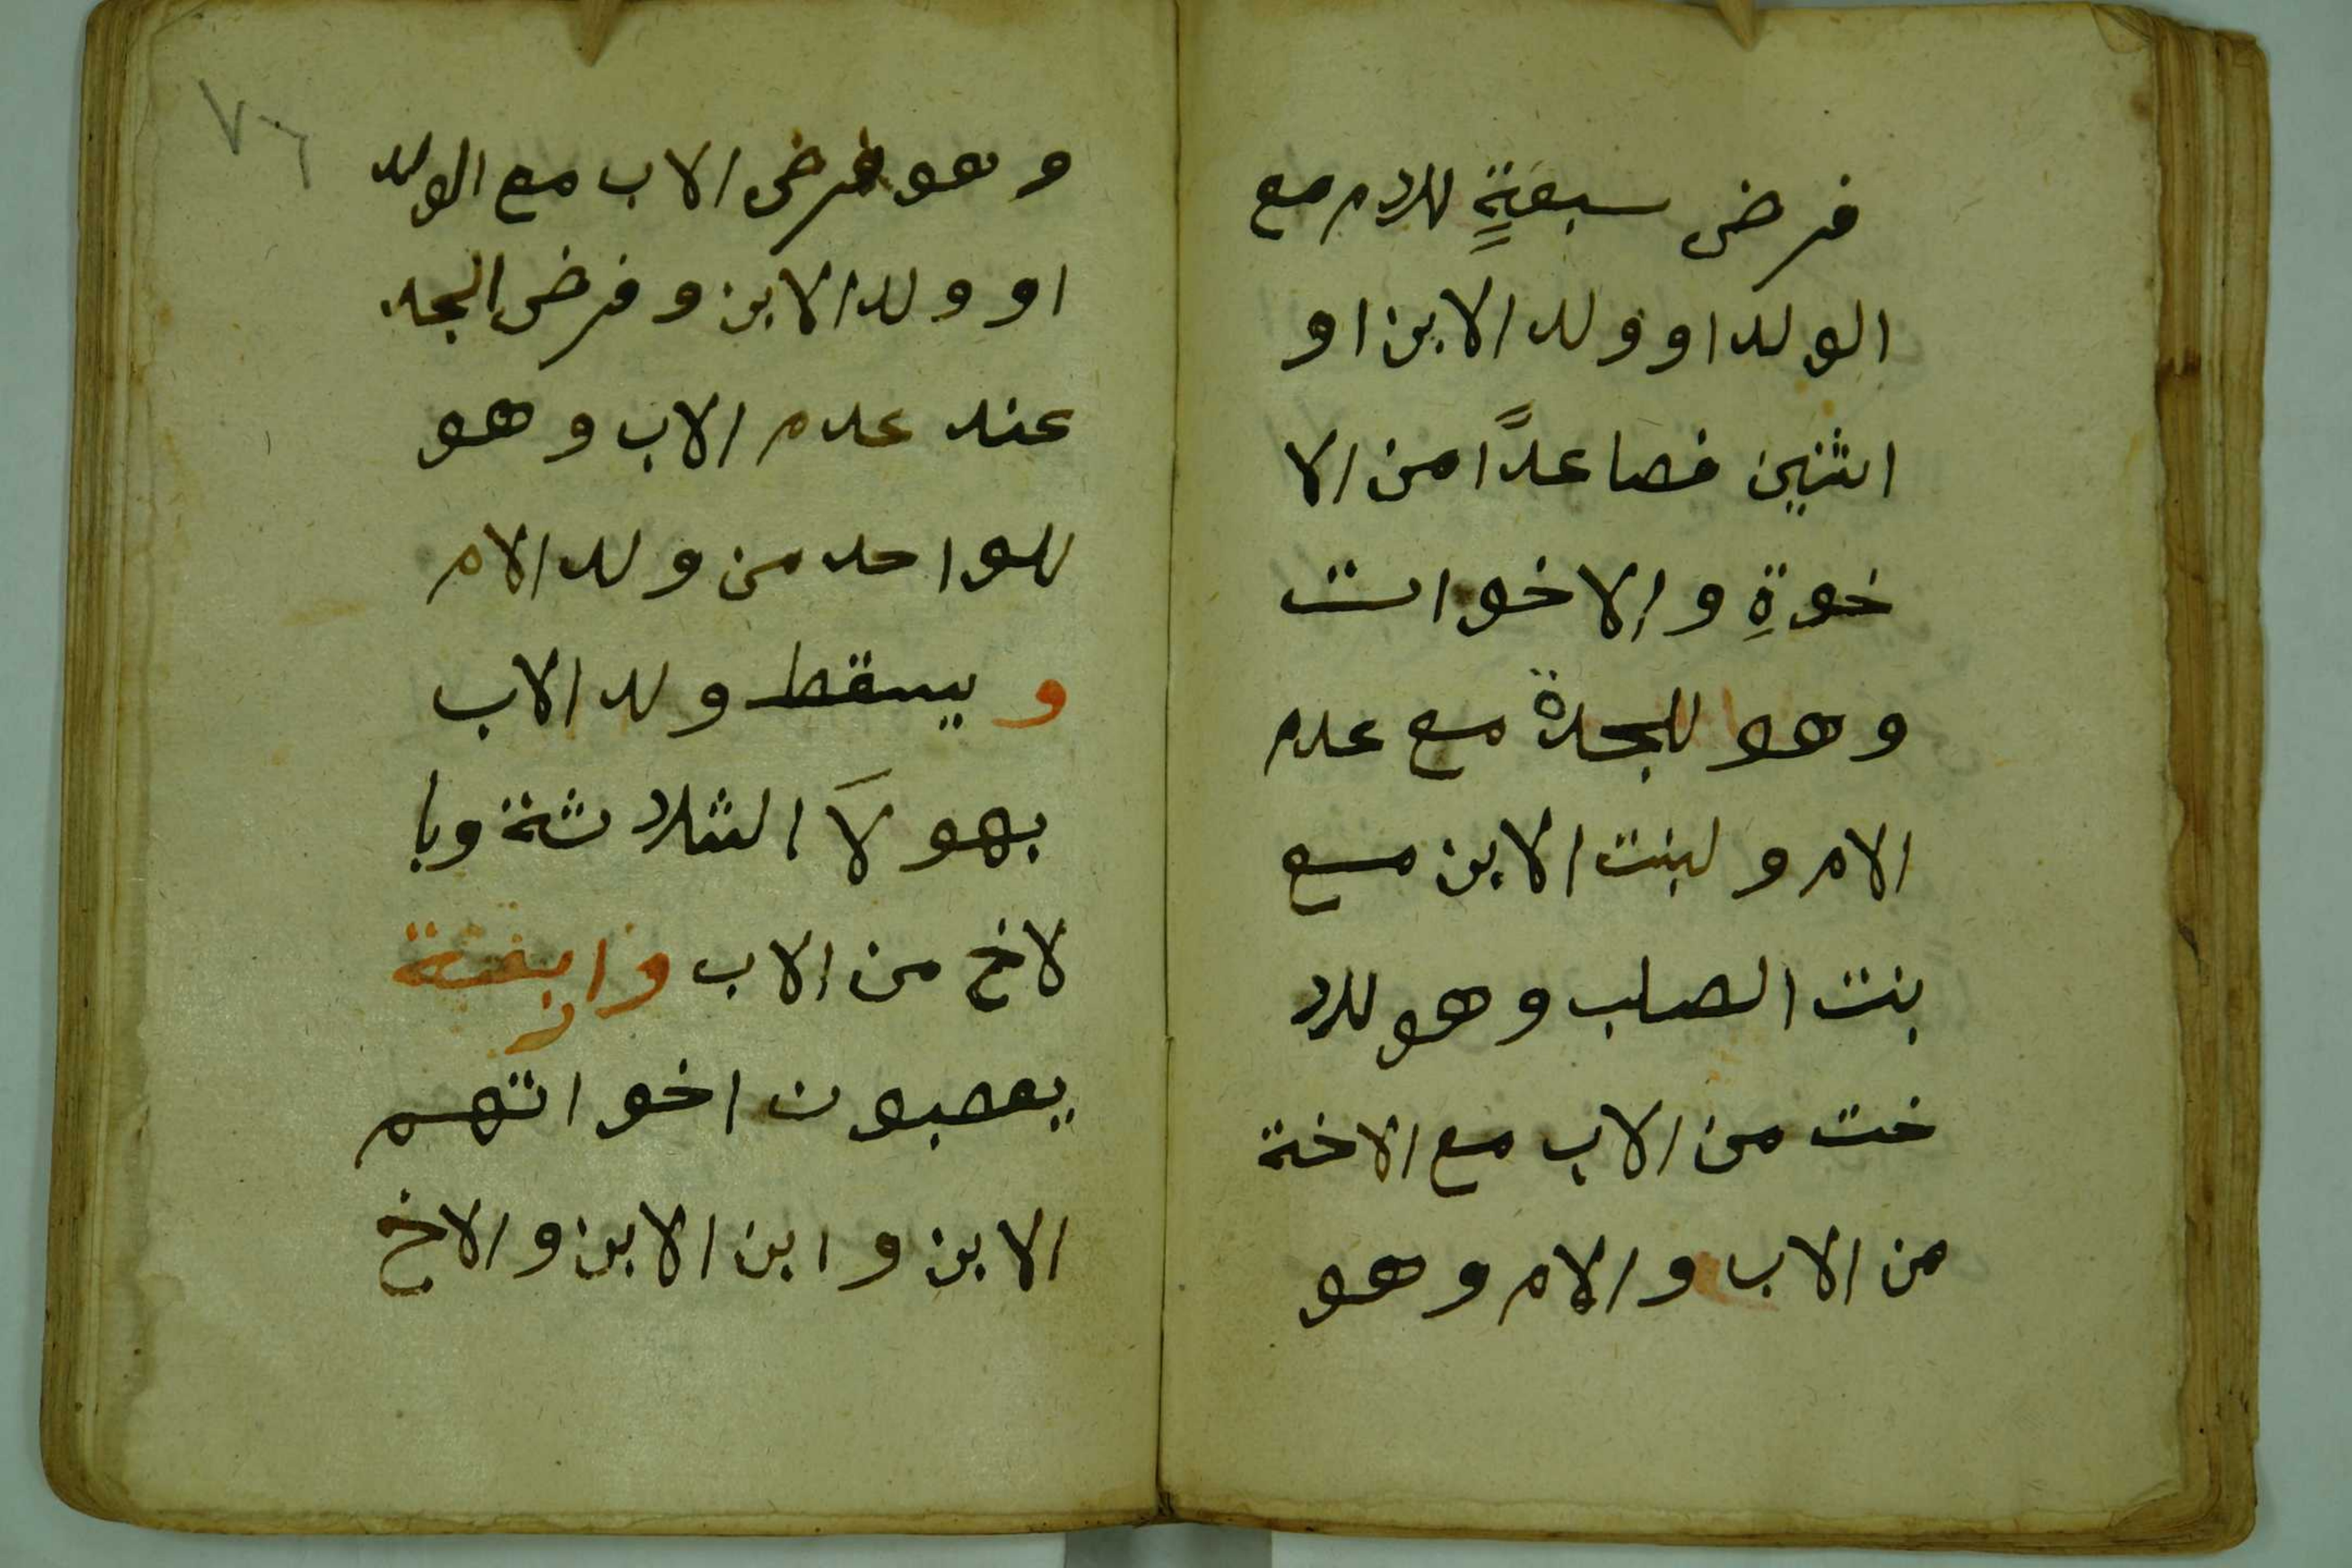 فرض سبعةٍ للام مع
الولد او ولد الابن او
اثنين فصاعدًا من الا
خوةِ والاخوات
وهو للجدة مع عدم
الام ولبنت الابن مع
بنت الصلب وهو للا
خت من الاب مع الاخة
من الاب والام وهو
٧٦
وهو فرض الاب مع الولد
او ولد الابن وفرض الجد
عند عدم الاب وهو
للواحد من ولد الام
و يسقط ولد الاب
بهولاَ الثلاثة وبا
لاخ من الاب واربعة
يعصبون اخواتهم
الابن وابن الابن والاخ